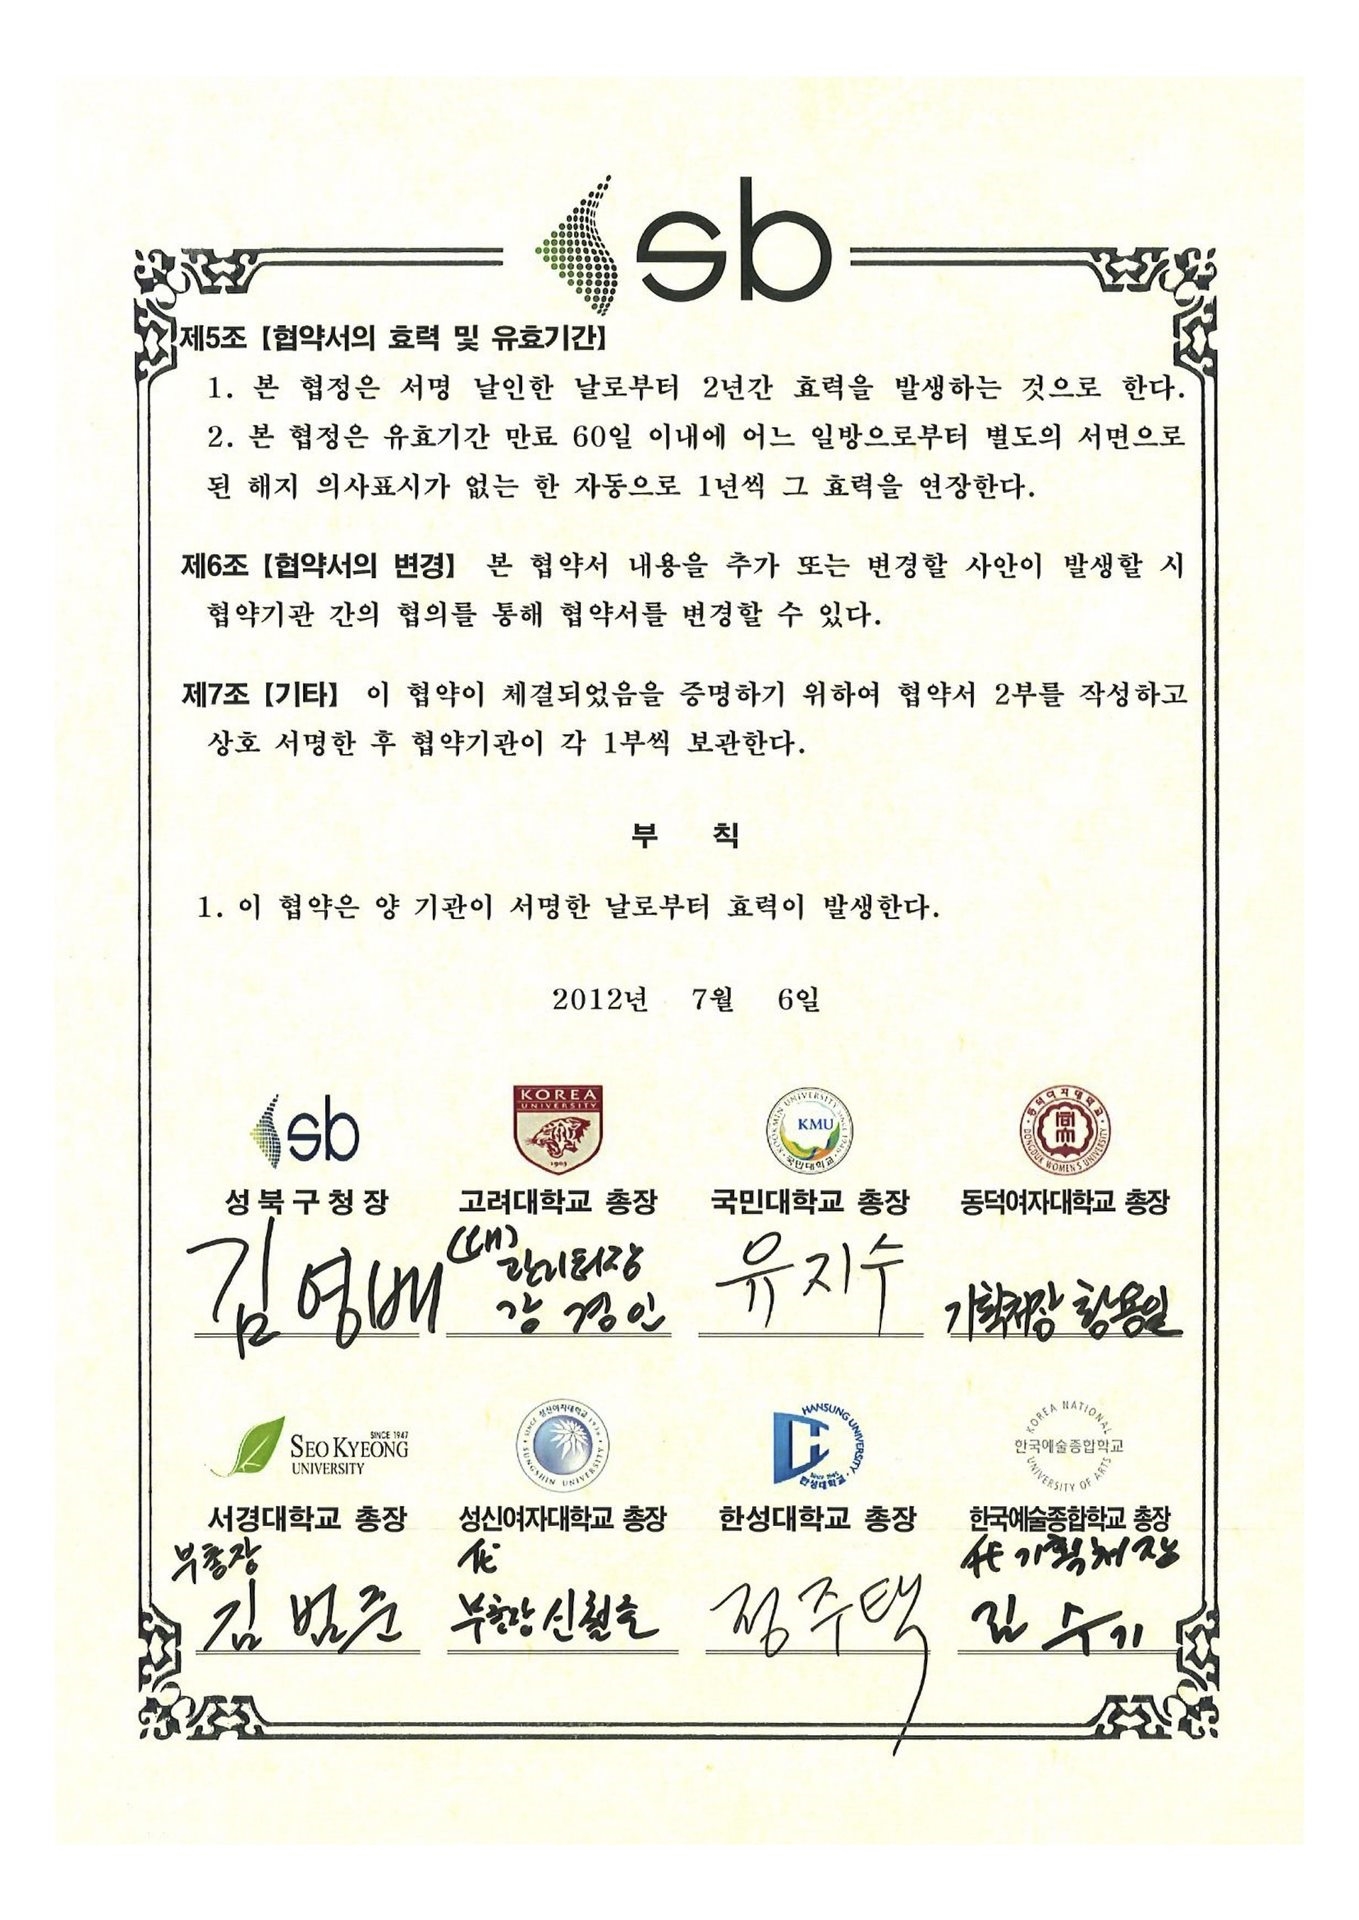 sb
제5조【협약서의 효력 및 유효기간】
1. 본 협정은 서명 날인한 날로부터 2년간 효력을 발생하는 것으로 한다.
2. 본 협정은 유효기간 만료 60일 이내에 어느 일방으로부터 별도의 서면으로
된 해지 의사표시가 없는 한 자동으로 1년씩 그 효력을 연장한다.
제6조【협약서의 변경】 본 협약서 내용을 추가 또는 변경할 사안이 발생할 시
협약기관 간의 협의를 통해 협약서를 변경할 수 있다.
제7조【기타】 이 협약이 체결되었음을 증명하기 위하여 협약서 2부를 작성하고
상호 서명한 후 협약기관이 각 1부씩 보관한다.
부 칙
1. 이 협약은 양 기관이 서명한 날로부터 효력이 발생한다.
2012년 7월 6일
sb
KOREA
UNIVERSITY
1905
KOOKMIN UNIVERSITY SINCE 1946
KMU
국민대학교
동덕여자대학교
DONGDUK WOMEN'S UNIVERSITY
성북구청장 고려대학교 총장 국민대학교 총장 동덕여자대학교 총장
김영배
(대) 관리처장
강경인
유지수
기획처장 황용일
SINCE 1947
SEO KYEONG
UNIVERSITY
SINCE 성신여자대학교 1936
SUNGSHIN UNIVERSITY
HANSUNG UNIVERSITY
한성대학교
KOREA NATIONAL
한국예술종합학교
UNIVERSITY OF ARTS
서경대학교 총장 성신여자대학교 총장 한성대학교 총장 한국예술종합학교 총장
부총장
김범준
代
부총장 신철순
정주택
代 기획처장
김수기